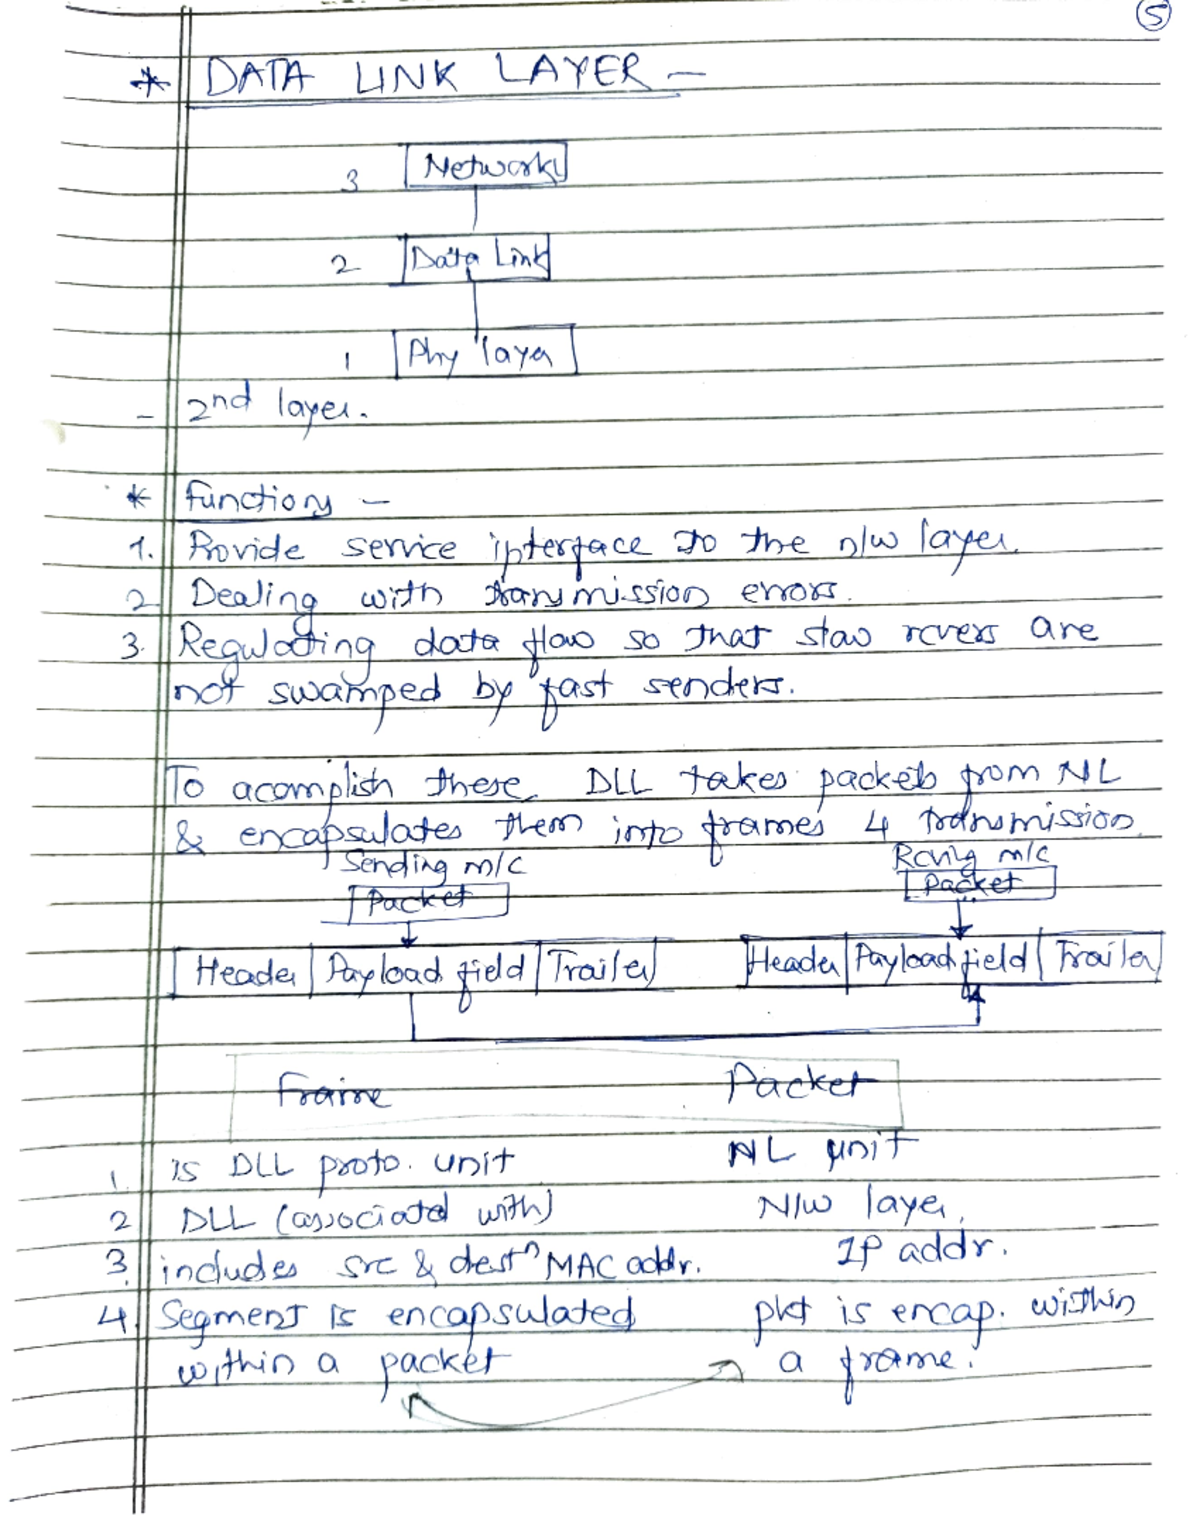 5
* DATA LINK LAYER –
3 Network
2 Data Link
1 Phy layer
– 2nd layer.
* Functions –
1. Provide service interface to the n/w layer.
2 Dealing with transmission errors.
3. Regulating data flow so that slow rcvers are
not swamped by fast senders.
To acomplish these, DLL takes packets from NL
& encapsulates them into frames 4 transmission.
Sending m/c Rcving m/c
Packet Packet
Header Payload field Trailer Header Payload field Trailer
Frame Packet
1. is DLL proto. unit NL unit
2 DLL (associated with) N/w layer,
3. includes src & destⁿ MAC addr. IP addr.
4. Segment is encapsulated pkt is encap. within
within a packet a frame.